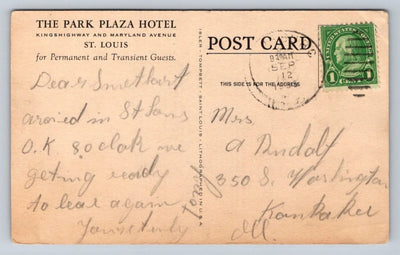 THE PARK PLAZA HOTEL
KINGSHIGHWAY AND MARYLAND AVENUE
ST. LOUIS
for Permanent and Transient Guests.
Dear Sweethart
arived in St Louis
O.K. 8 oclok we
geting ready
to leav again
Yours truly
ISLER TOMPSETT SAINT LOUIS LITHOGRAPHED IN U.S.A.
POST CARD
THIS SIDE IS FOR THE ADDRESS
SEP
12
UNITED STATES POSTAGE
1 1
Mrs
A
350 S. Washington
Kankakee
Ill.